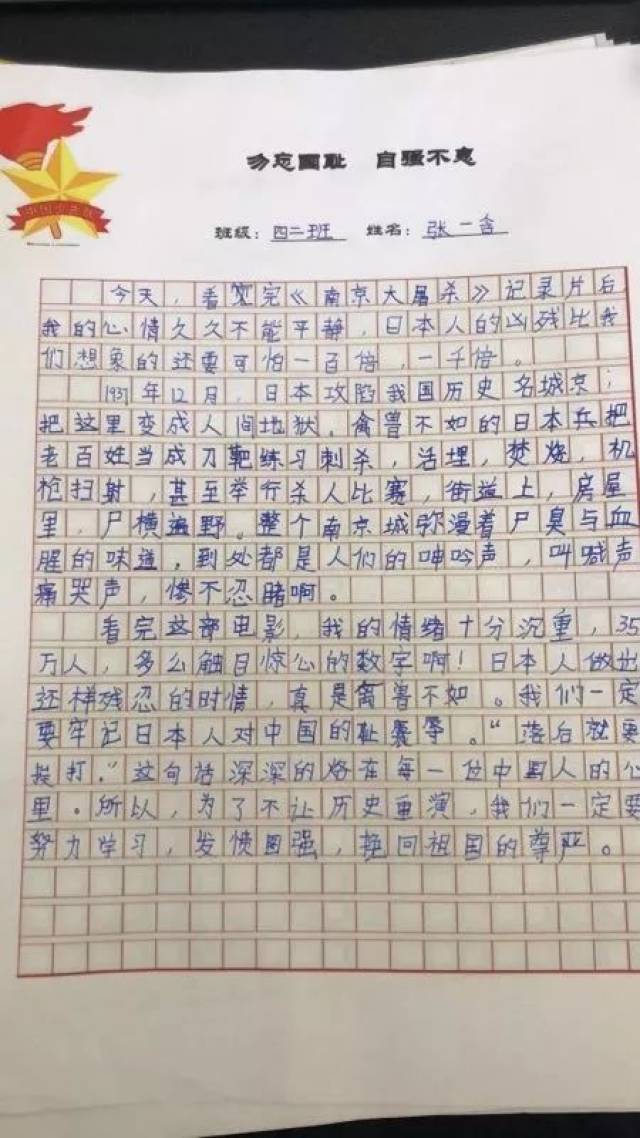 勿忘國耻 自强不息
班级：四二班 姓名：张一含
今天，看完《南京大屠杀》记录片后
我的心情久久不能平静，日本人的凶残比我
们想象的还要可怕一百倍，一千倍。
1937年12月，日本攻陷我国历史名城京；
把这里变成人间地狱。禽兽不如的日本兵把
老百姓当成刀靶练习刺杀，活埋，焚烧，机
枪扫射，甚至举行杀人比赛，街道上，房屋
里，尸横遍野。整个南京城弥漫着尸臭与血
腥的味道，到处都是人们的呻吟声，叫喊声
痛哭声，惨不忍睹啊。
看完这部电影，我的情绪十分沉重，35
万人，多么触目惊心的数字啊！日本人做出
这样残忍的时情，真是禽兽不如。我们一定
要牢记日本人对中国的耻辱。“落后就要
挨打。”这句话深深的烙在每一位中国人的心
里。所以，为了不让历史重演，我们一定要
努力学习，发愤图强，挽回祖国的尊严。